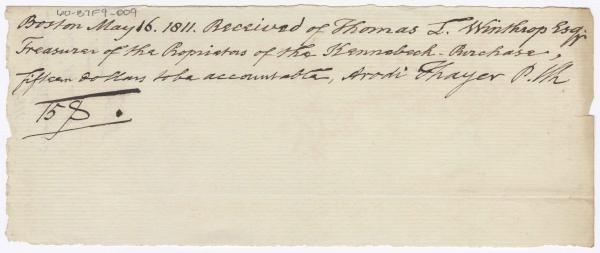 60-B7F9-009
Boston May 16. 1811. Received of Thomas L. Winthrop Esqr
Treasurer of the Propietors of the Kennebeck Purchase,
fifteen dollars to be accountable, Arodi Thayer
15$.